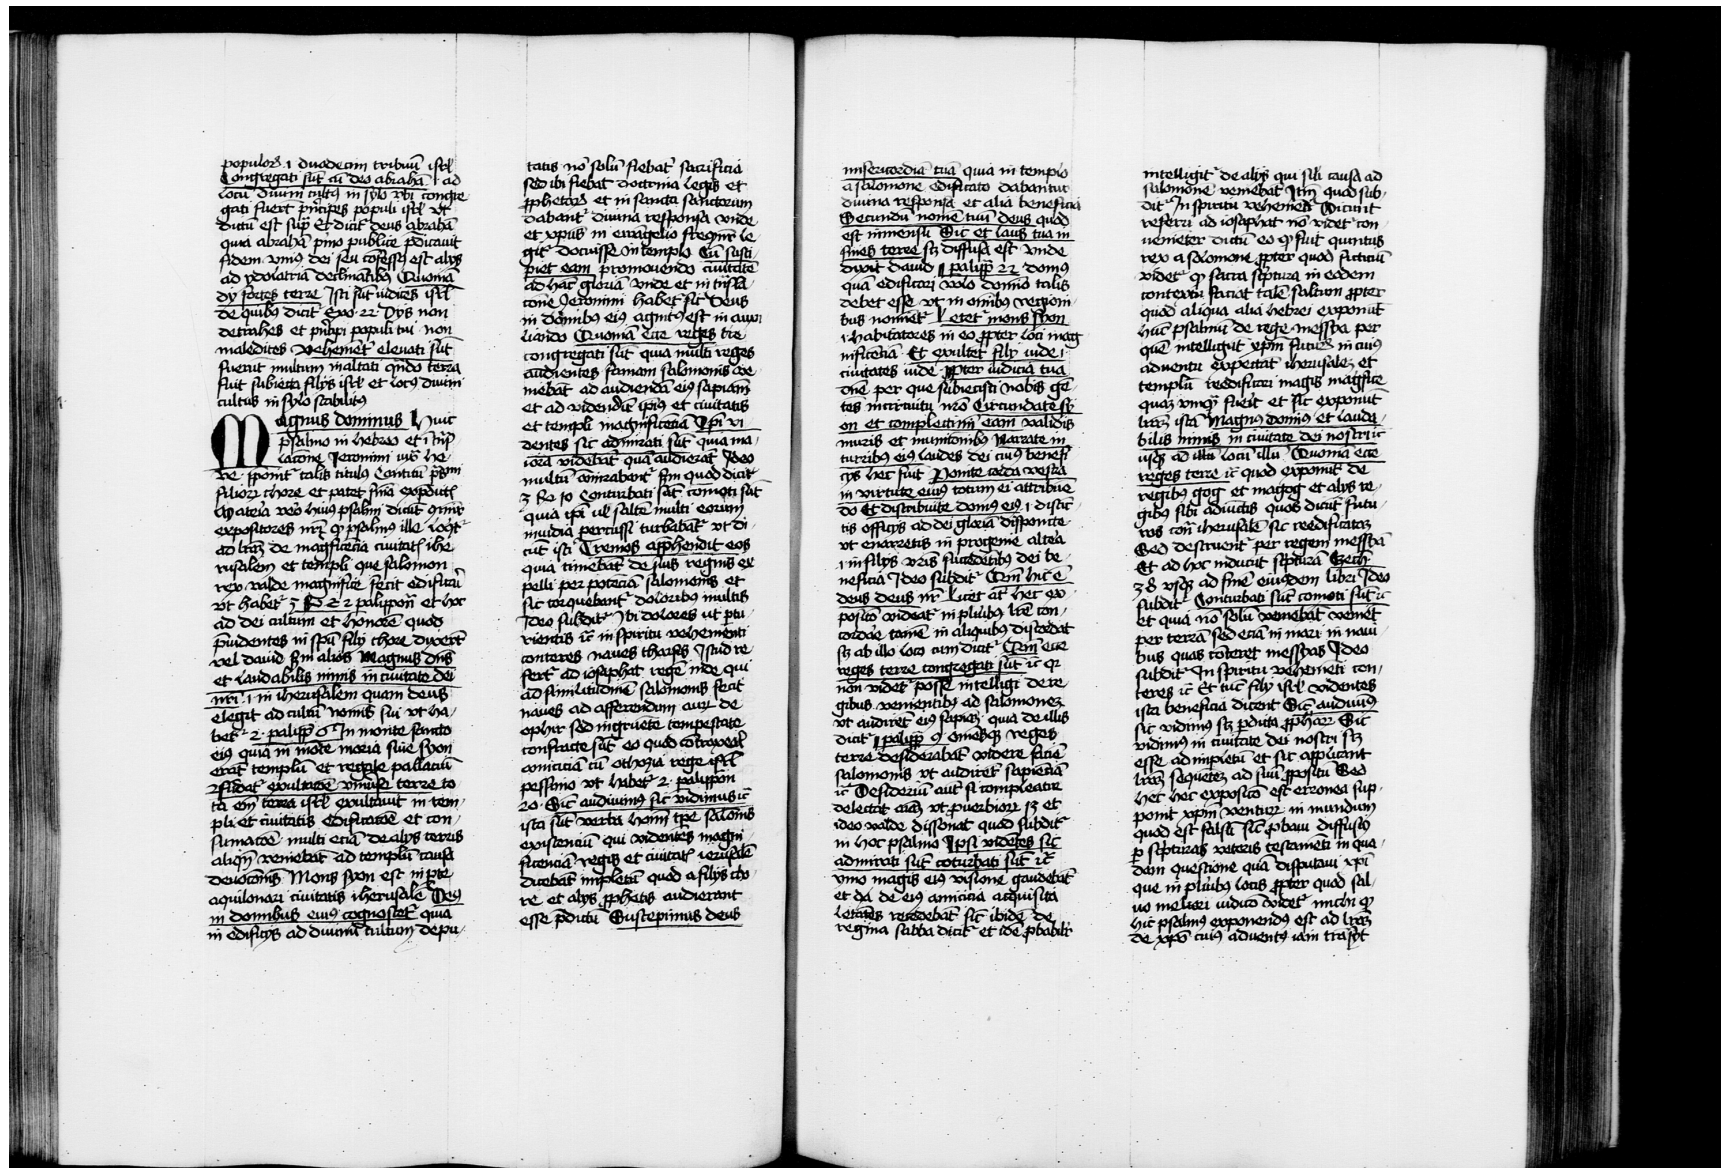 populoꝝ .i. duodecim tribuū isrl̄
Congregati sūt cū deo abrahā .i. ad
locū diuini cultꝰ in sylo vbi congre
gati fuerūt pͥncipes populi isrl̄ vt
dictū est supͣ Et dicit̄ deus abrahā
quia abrahā pͥmo publice p̄dicauit
fidem vniꝰ dei seu cōfessꝰ est alijs
ad ydolatriā declinātibꝰ Quoniā
dij fortes terre Isti sūt iudices isrl̄
de quibꝰ dicit̄ Exo. 22 Dijs non
detrahes et pͥncipi populi tui non
maledices vehemēt̄ eleuati sūt
fuerūt multum exaltati qn̄do terra
fuit subiecta filijs isrl̄ et locꝰ diuini
cultus in sylo stabilitꝰ
Magnus dominus Huic
psalmo in hebreo et ī trās
lacōne Jeronimi iuxͣ he
re. ponit̄ talis titulus Canticū psͣmi
filioꝝ chore et patet sn̄ia expōicīs
Materia vero huiꝰ psalmi dicūt
expositores nr̄i ꝙ psalmus iste loqͥt̄
ad lrāꝫ de magnificēcia ciuitatꝭ ihe
rusalem et templi que salomon
rex valde magnifice fecit edificari
vt habet̄ 3 R̄ et 2 palippon̄ et hoc
ad dei cultum et honorē quod
p̄uidentes in spū filij chore dixerūt
vel dauid scd̄m alios Magnus dn̄s
et laudabilis nimis in ciuitate dei
nr̄i .i. in iherusalem quam deus
elegit ad cultū nominis sui vt ha-
bet̄ 2. palipp̄ 6 In monte sancto
eiꝰ quia in mōte moria siue syon
erat templū et regale pallaciū
fūdat̄ exultacōe vniuse terre to
ta em̄ terra isrl̄ exultauit in tem-
pli et ciuitatis edificacōe et con-
sumacōe multi eciā de alijs terris
aliqn̄ veniebāt ad templū causa
deuocōnis Mons syon est in pͣte
aquilonari ciuitatis iherusalē Deꝰ
in domibus eius cognoscet̄ quia
in edificijs ad diuinū cultum depu-
tatis nō solū fiebat̄ sacrificia
sed ibi fiebat doctrina legis et
ꝓphetaꝝ et in sancta sanctorum
dabant̄ diuina responsa vnde
et xp̄us in ewāgelio frequēt̄ le-
git̄ docuisse in templo Cū susci-
piet eam promouendo ciuitatē
ad hāc gloriā vnde et in trāsla-
cōne Jeronimi habet̄ sic Deus
in domibꝰ eiꝰ agnitꝰ est in auxi-
liando Quoniā ecce reges tre
congregati sūt quia multi reges
audientes famam salomonis ve-
niebāt ad audiendā eiꝰ sapiām
et ad videndū ip̄ius et ciuitatis
et templi magnificēciā Ipsi vi
dentes sic admirati sūt quia ma-
iora videbāt quā audierāt Ideo
multū mirabant̄ scd̄m quod dicit̄
3 R̄ 10 Conturbati sūt cōmoti sūt
quia ipsi vl̄ saltē multi eorum
inuidia percussi turbabāt̄ vt di-
cūt isti Tremor app̄hendit eos
quia timebāt de suis regnis ex
pelli per potēciā salomonis et
sic torquebant̄ doloribꝰ multis
Ideo subdit̄ Ibi dolores ut ptu-
rientis ic̄ in spiritu vehementi
conteres naues tharsis Istud re
fert̄ ad iosaphat regē iude qui
ad similitudinē salomonis fecit
naues ad afferendum auꝝ de
ophir sed ingruēte tempestate
confracte sūt eo quod cōtraxerat
amiciciā cū othozia rege isrl̄
pessimo vt habet̄ 2. palippon̄
20. Sic audiuimꝰ sic vidimus ic̄
ista sūt verba hoīm tp̄e salomōis
existenciū qui videntes magni
ficenciā regis et ciuitatꝭ ierusalē
dicebāt impletū quod a filijs cho-
re et alijs ꝓphetis audierant
esse p̄dictū Suscepimus deus
misericordiā tuā quia in templo
a salomone edificato dabantur
diuina responsa et alia beneficia
Secundū nomē tuū deus quod
est immensū Sic et laus tua in
fines terre scꝫ diffusa est vnde
dixit dauid 1 palipp̄ 22 domꝰ
quā edificari volo domīo talis
debet esse vt in omībus regioni-
bus nominet̄ Letet̄ mons syon
.i. habitatores in eo ꝓpter loci mag
nificēciā Et exultēt filie iude .i.
ciuitates iude ꝓpter iudicia tua
dn̄e per que subiecisti nobis gē-
tes in circuitu nr̄o Circundate sy
on et complectimī eam validis
muris et municōnibꝰ Narrate in
turribus eiꝰ laudes dei cuiꝰ benefi-
cijs hec fiūt Ponite corda vestra
in virtute eius totum ei attribuē-
do Et distribuite domꝰ eiꝰ .i. distic̄-
tis officijs ad dei gloriā disponite
vt enarretis in progenie altera
.i. in filijs vr̄is succedētibꝰ dei be-
neficia Ideo subdit̄ Qm̄ hic ē
deus deus nr̄ Licet aūt hec ex-
posicō videat̄ in pluribꝰ lrē con-
cordare tamē in aliquibꝰ discordat
scꝫ ab illo loco cum dicit̄ Qm̄ ecce
reges terre congregati sūt ic̄ qꝛ
non videt̄ posse intelligi de re-
gibus venientibꝰ ad salomonē
vt audirēt eiꝰ sapiaꝫ quia de illis
dicit̄ 1 palipp̄ 9 omesqꝫ reges
terre desiderabāt videre faciē
salomonis vt audirēt sapienciā
ic̄ Desideriū aūt si compleatur
delectat aīaꝫ vt ꝓuerbioꝝ 13 et
ideo valde dissonat quod subdit̄
in hoc psalmo Ipsi vidētes sic
admirati sūt cōturbati sūt ic̄
ymo magis eiꝰ visione gaudebāt
et de eiꝰ amicicia acquisita
letātes recedebāt sic̄ ibidē de
regina sabba dicit̄ et idē ꝓbabilr̄
intelligit̄ de alijs qui sili causa ad
salomonē veniebāt Itm̄ quod sub-
dit̄ In spiritu vehemēti Dicunt
referri ad iosaphat nō videt̄ con-
uenieter dictū eo ꝙ fuit quintus
rex a salomone ꝓpter quod ficticiū
videt̄ ꝙ sacra sc̄ptura in eodem
contextu faciat talē saltum ꝓpter
quod aliqua alia hebrei exponūt
hūc psalmū de rege messya per
quē intelligūt xp̄m futurꝫ in cuiꝰ
aduentu expectāt iherusalēꝫ et
templū reedificari magis magnifice
quaꝫ vmqͣꝫ fuerit et sic exponūt
lrāꝫ istā Magnꝰ domīꝰ et lauda-
bilis nimis in ciuitate dei nostri ic̄
vsqꝫ ad illū locū illū Quoniā ecce
reges terre ic̄ quod exponūt de
regibus gog et magog et alijs re-
gibꝰ sibi adiūctis quos dicūt futu-
ros contͣ iherusalē sic reedificatāꝫ
Sed destruent̄ per regem messyā
Et ad hoc inducūt sc̄pturā Ezech.
38 vsqꝫ ad finē eiusdem libri Ideo
subdit̄ Conturbati sūt cōmoti sūt ic̄
et quia nō solū veniebāt veniēt
per terrā sed eciā in mari in naui
bus quas cōteret messyas Ideo
subdit̄ In spiritu vehemēti con-
teres ic̄ Et tūc filij isrl̄ videntes
ista beneficia dicent Sic̄ audiuimꝰ
sic vidimus scꝫ p̄dicta ꝓphaꝝ Sic
vidimꝰ in ciuitate dei nostri scꝫ
esse adimpletū et sic applicant
lrāꝫ sequētē ad suū ꝓpositū Sed
hec hec exposicō est erronea sup-
ponit̄ xp̄m venturꝫ in mundum
quod est falsū sic̄ ꝓbaui diffusiꝰ
ꝑ sc̄pturas veteris testamēti in qua-
dam questione quā disputaui xp̄i
que in pluribꝰ locis ꝓpter quod sal-
uo meliori iudico videt̄ michi ꝙ
hic psalmꝰ exponendus est ad lrāꝫ
de xp̄o cuiꝰ aduentꝰ iam trāsijt